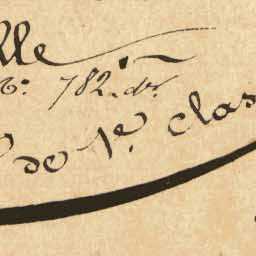 lle
No: 782. dr.
de 1e. clas